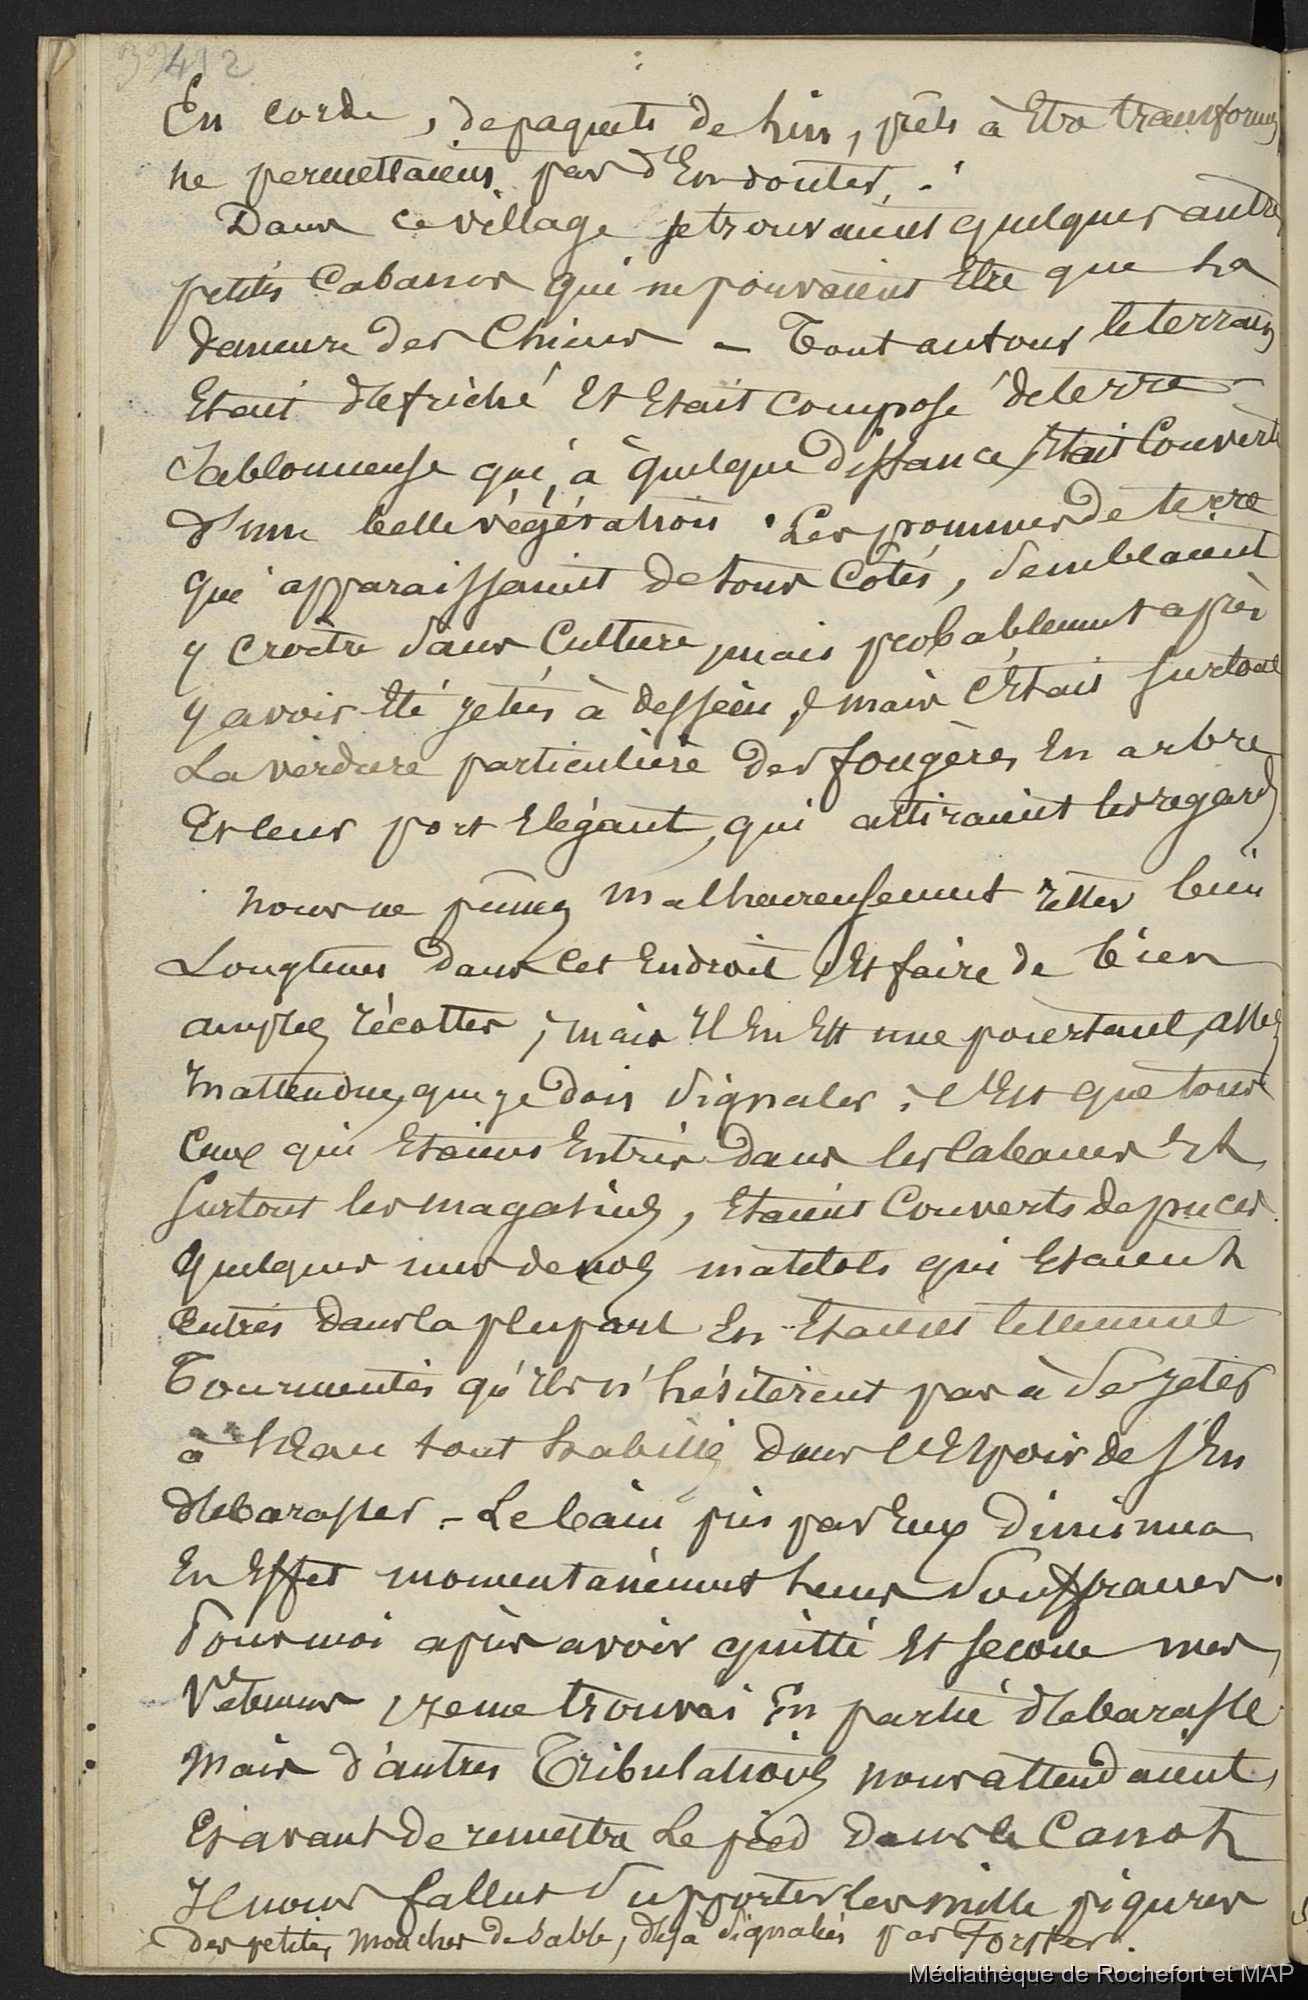 412
En corde, de paquets de lin, prêts à Etre transformés
ne permettaient pas d'En douter.
Dans ce village se trouvaient quelques autres
petites Cabannes qui ne pouvaient Etre que la
demeure des Chiens - Tout autour le terrain
Etait défriché Et Etait composé de terre
Sablonneuse qui, à quelque distance, Etait Couverte
d'une belle végétation. Les pommes de terre
qui apparaissaient de tous Côtés, semblaient
y croître sans Culture, mais probablement après
y avoir Eté jetées à dessein, mais c'Etait surtout
La verdure particulière des fougères En arbre
Et leur port Elégant, qui attiraient les regards
nous ne pûmes malheureusement rester bien
Longtems dans cet Endroit Et faire de bien
amples récoltes ; mais Il En Est une pourtant, assez
Inattendue, que je dois signaler : c'Est que tous
Ceux qui Etaient Entrés dans les Cabanes Et
surtout les magasins, Etaient Couverts de puces.
Quelques uns de nos matelots qui Etaient
Entrés dans la plupart En Etaient tellement
Tourmentés qu'Ils n'hésitèrent pas à se jeter
à l'Eau tout habillés dans l'Espoir de s'En
débarasser - Le bain pris par Eux diminua
En Effet momentanément leurs souffrances.
Pour moi après avoir quitté Et secoué mes
Vêtemens, je me trouvai En partie débarassé
Mais d'autres Tribulations nous attendaient,
Et avant de remettre Le pied dans le Canot
Il nous fallut supporter les mille piqures
des petites mouches de Sable, déjà signalées par Forster.
Médiathèque de Rochefort et MAP